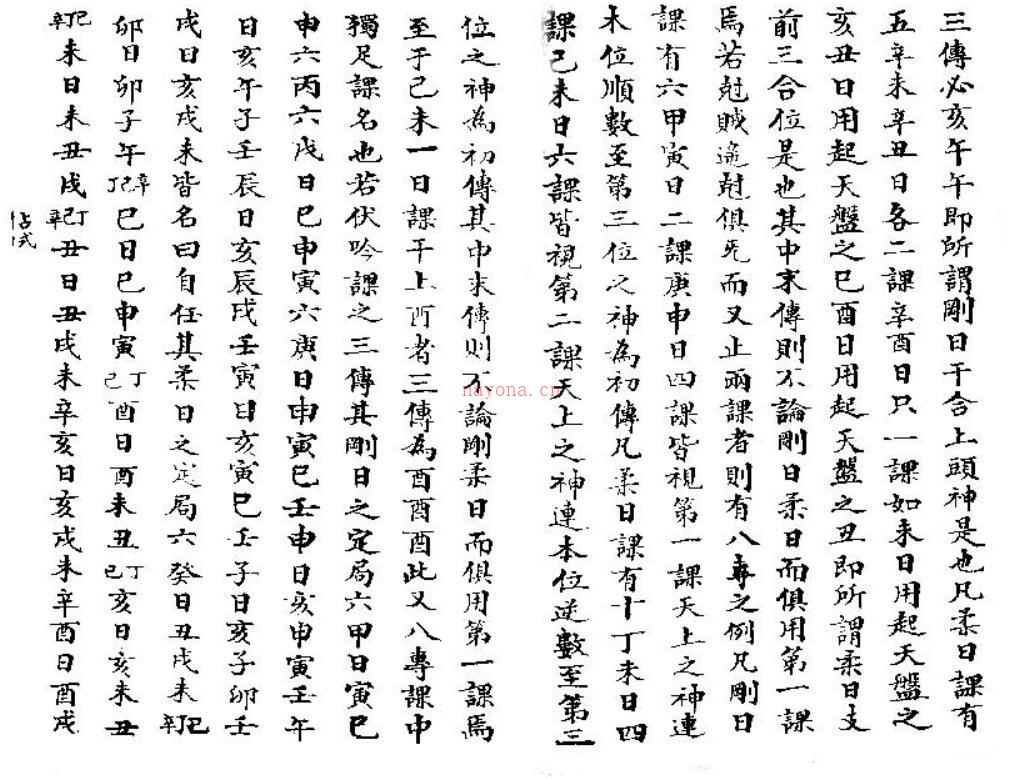 三傳必亥午午即所謂剛日干合上頭神是也凡柔日課有
五辛未辛丑日各二課辛酉日只一課如未日用起天盤之
亥丑日用起天盤之巳酉日用起天盤之丑即所謂柔日支
前三合位是也其中末傳則不論剛日柔日而俱用第一課
焉若尅賊遥尅俱无而又止兩課者則有八專之例凡剛日
課有六甲寅日二課庚申日四課皆視第一課天上之神連
本位順數至第三位之神為初傳凡柔日課有十丁未日四
課己未日六課皆視第二課天上之神連本位逆數至第三
位之神為初傳其中末傳則不論剛柔日而俱用第一課焉
至于己未一日課干上酉者三傳為酉酉酉此又八專課中
獨足課名也若伏吟課之三傳其剛日之定局六甲日寅巳
申六丙六戊日巳申寅六庚日申寅巳壬申日亥申寅壬午
日亥午子壬辰日亥辰戌壬寅日亥寅巳壬子日亥子卯壬
戌日亥戌未皆名曰自任其柔日之定局六癸日丑戌未辛己
卯日卯子午丁己辛巳日巳申寅己丁酉日酉未丑己丁亥日亥未丑
辛己未日未丑戌辛己丁丑日丑戌未辛亥日亥戌未辛酉日酉戌
占式
nayona.cn